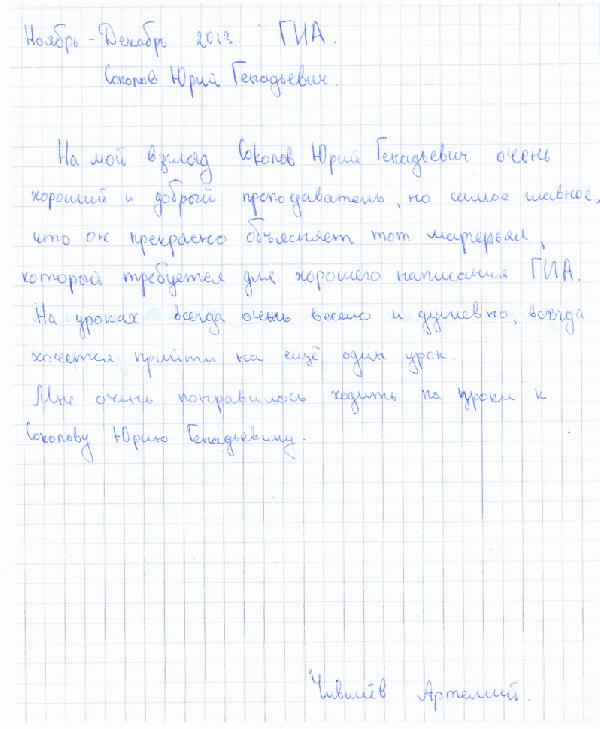 Ноябрь - Декабрь 2013 ГИА.
Соколов Юрий Генадьевич.
На мой взгляд Соколов Юрий Генадьевич очень
хороший и добрый преподаватель, но самое главное,
что он прекрасно объясняет тот матерьял,
который требуется для хорошего написания ГИА.
На уроках всегда очень весело и душевно, всегда
хочется прийти на ещё один урок.
Мне очень понравилось ходить на уроки к
Соколову Юрию Генадьевичу.
Артемий.